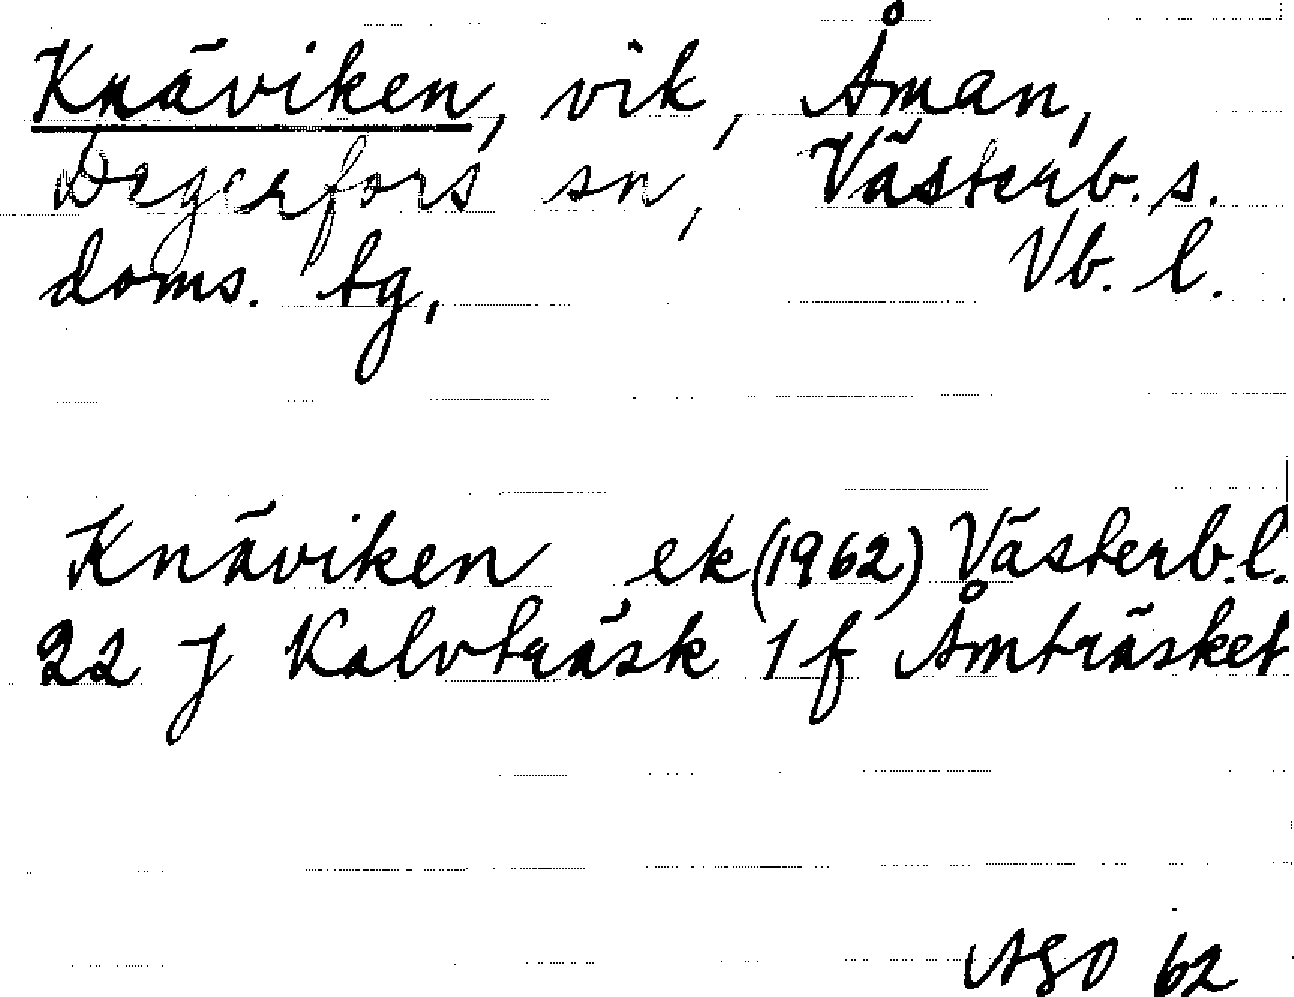 Knäviken, vik, Åman,
Degerfors sn, Västerb. s.
doms. tg, Vb. l.
Knäviken ek (1962) Västerb. l.
22 J Kalvträsk 1 f Åmträsket
AGO 62